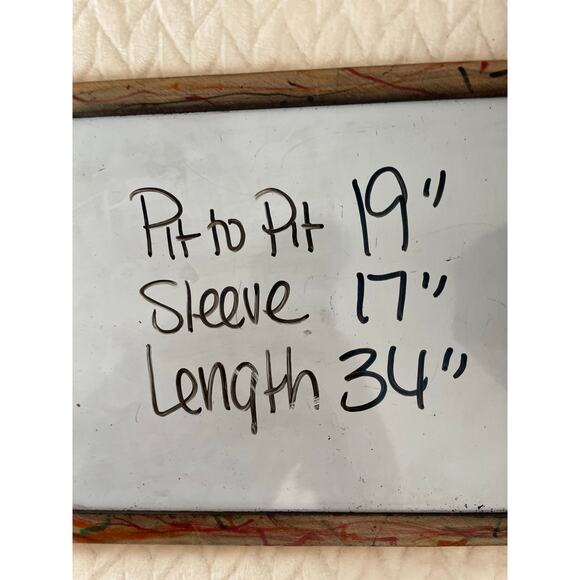 Pit to Pit 19"
Sleeve 17"
Length 34"